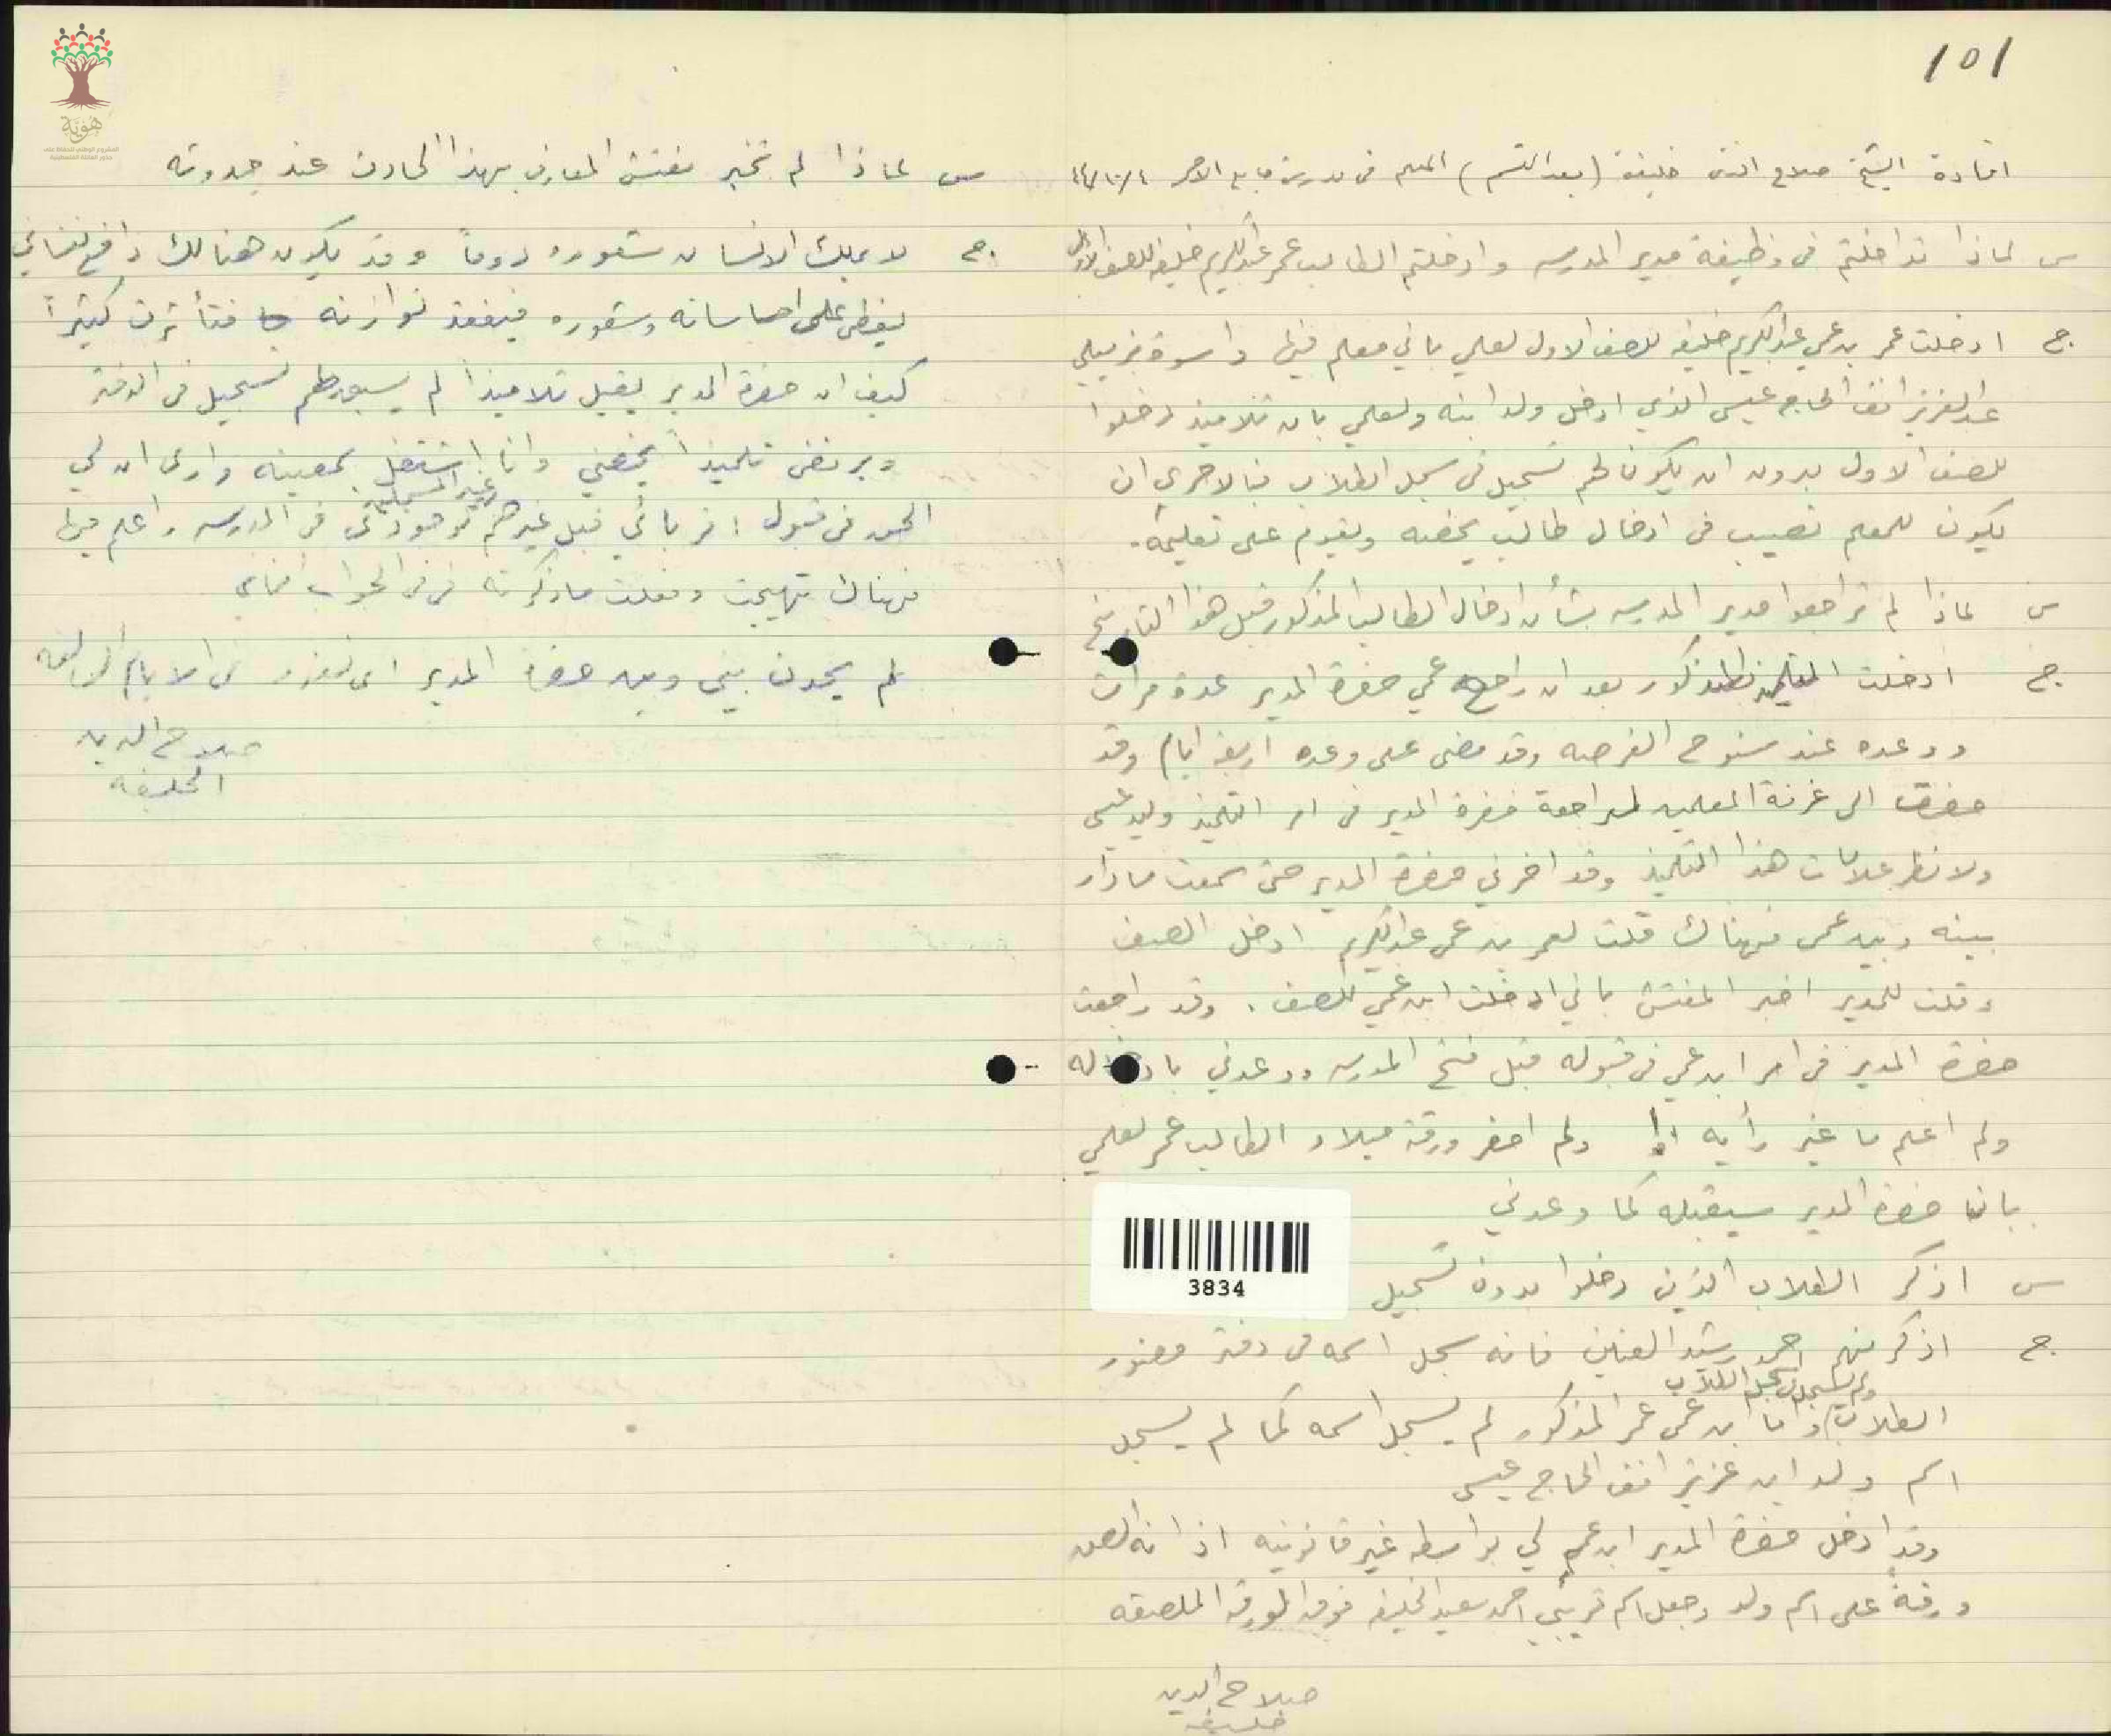 101
افادة الشيخ صلاح الدين خليفة (بعد القسم) المعلم في مدرسة
س لماذا تداخلتم في وظيفة مدير المدرسه وادخلتم الطالب عمر عبدالكريم خليفه للصف الاول
ج ادخلت عمر بن عمي عبدالكريم خليفه للصف الاول لعلمي باني معلم فيها واسوة بزميلي
عبدالعزيز افندي الحاج عيسى الذي ادخل ولد ابنه ولعلمي بان تلاميذ دخلوا
للصف الاول بدون ان يكون لهم تسجيل في سجل الطلاب فبالاحرى ان
يكون للمعلم نصيب في ادخال طالب يخصه ويقوم على تعليمه.
س لماذا لم تراجعوا مدير المدرسه بشأن ادخال الطالب المذكور قبل هذا التاريخ
ج ادخلت التلميذ المذكور بعد ان راجع عمي حضرة المدير عدة مرات
ووعده عند سنوح الفرصه وقد مضى على وعده اربعة ايام وقد
حضرت الى غرفة المعلمين لمراجعة حضرة المدير في امر التلميذ وليد عيسى
ولانظر علامات هذا التلميذ وقد اخرني حضرة المدير حتى سمعت ما دار
بينه وبين عمي فهناك قلت لعمر بن عمي عبدالكريم ادخل الصف
وقلت للمدير اخبر المفتش باني ادخلت ابن عمي للصف. وقد راجعت
حضرة المدير في امر ابن عمي في قبوله قبل فتح المدرسه ووعدني بادخاله
ولم اعلم ما غير رأيه ولم احضر ورقة ميلاد الطالب عمر لعلمي
بان حضرة المدير سيقبله كما وعدني
س اذكر الطلاب الذين دخلوا بدون تسجيل
ج اذكر منهم احمد رشيد فانه سجل اسمه في دفتر حضور
ولم يسجل في سجل الطلاب
الطلاب واما ابن عمي عمر المذكور لم يسجل اسمه كما لم يسجل
اسم ولد ابن عزيز افندي الحاج عيسى
وقد ادخل حضرة المدير ابن عم لي بواسطه غير قانونيه اذ انه الصق
ورقة على اسم ولد وجعل اسم قريبي احمد سعيد الخليفه فوق الورقه الملصقه
صلاح الدين
خليفه
3834
س لماذا لم تخبر مفتش المعارف بهذا الحادث عند حدوثه
ج لا يملك الانسان شعوره دوماً وقد يكون هنالك دافع نفساني
يغطى على احساساته وشعوره فيفقد توازنه فتأثرت كثيراً
كيف ان حضرة المدير يقبل تلاميذاً لم يسبق لهم تسجيل في الدفتر
ويرفض تلميذاً يخصني وانا اشتغل بمعيته وارى ان لي
الحق في قبول اقربائي قبل غيرهم غير المسجلين في المدرسه واعلم فيها
فهناك تهيجت وفعلت ما ذكرته في الجواب
لم يحدث بيني وبين حضرة المدير اي نفور في الايام السالفه
صلاح الدين
الخليفه
هوية